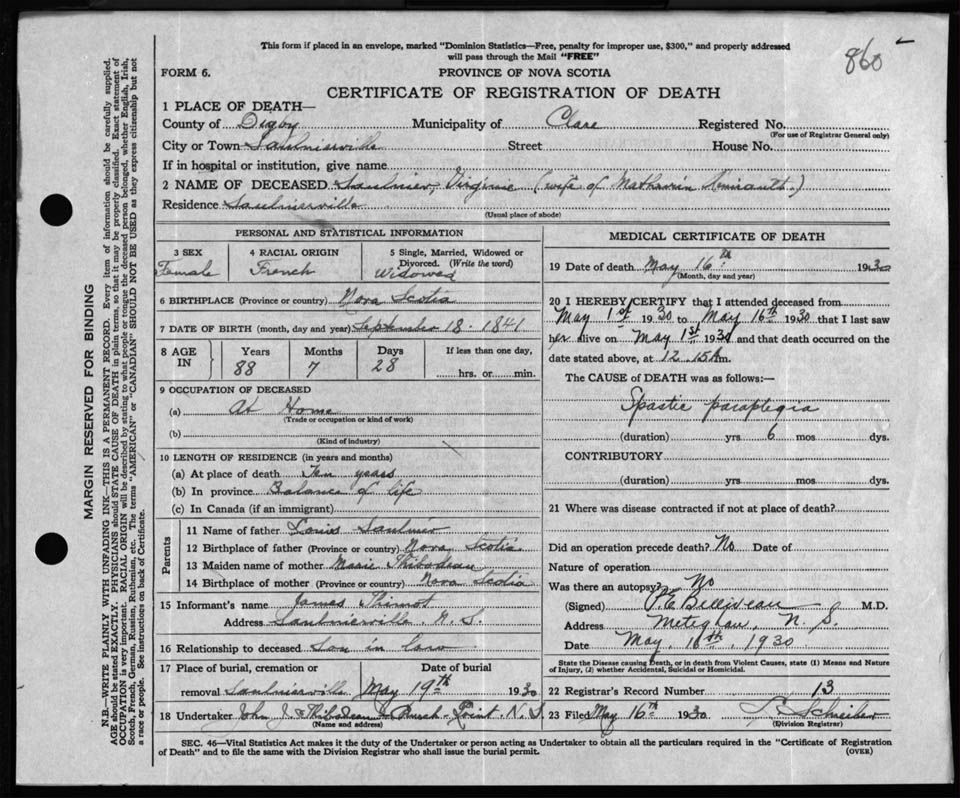 This form if placed in an envelope, marked "Dominion Statistics—Free, penalty for improper use, $300," and properly addressed
will pass through the Mail "FREE"
860
FORM 6.
PROVINCE OF NOVA SCOTIA
CERTIFICATE OF REGISTRATION OF DEATH
1 PLACE OF DEATH—
County of Digby Municipality of Clare Registered No.
(For use of Registrar General only)
City or Town Saulnierville Street House No.
If in hospital or institution, give name
2 NAME OF DECEASED Saulnier, Virginie (wife of Mathurin)
Residence Saulnierville
(Usual place of abode)
PERSONAL AND STATISTICAL INFORMATION
3 SEX 4 RACIAL ORIGIN 5 Single, Married, Widowed or
Divorced. (Write the word)
Female French Widowed
6 BIRTHPLACE (Province or country) Nova Scotia
7 DATE OF BIRTH (month, day and year) September 18. 1841
8 AGE IN Years Months Days If less than one day,
88 7 28 hrs. or min.
9 OCCUPATION OF DECEASED
(a) At Home
(Trade or occupation or kind of work)
(b)
(Kind of industry)
10 LENGTH OF RESIDENCE (in years and months)
(a) At place of death Ten years
(b) In province Balance of life
(c) In Canada (if an immigrant)
Parents
11 Name of father Louis Saulnier
12 Birthplace of father (Province or country) Nova Scotia
13 Maiden name of mother Marie Thibodeau
14 Birthplace of mother (Province or country) Nova Scotia
15 Informant's name James Thimot
Address Saulnierville N. S.
16 Relationship to deceased Son in law
17 Place of burial, cremation or Date of burial
removal Saulnierville May 19th 1930
18 Undertaker John J. Thibodeau Church Point N. S.
(Name and address)
MEDICAL CERTIFICATE OF DEATH
19 Date of death May 16th 1930
(Month, day and year)
20 I HEREBY CERTIFY that I attended deceased from
May 1st 1930 to May 16th 1930 that I last saw
her alive on May 1st 1930 and that death occurred on the
date stated above, at 12.15 A m.
The CAUSE of DEATH was as follows:—
Spastic paraplegia
(duration) yrs 6 mos dys.
CONTRIBUTORY
(duration) yrs. mos. dys.
21 Where was disease contracted if not at place of death?
Did an operation precede death? No Date of
Nature of operation
Was there an autopsy? No
(Signed) P. E. Belliveau M.D.
Address Meteghan, N. S.
Date May, 16th, 1930
State the Disease causing Death, or in death from Violent Causes, state (1) Means and Nature
of Injury, (2) whether Accidental, Suicidal or Homicidal.
22 Registrar's Record Number 13
23 Filed May 16th 1930
(Division Registrar)
SEC. 46—Vital Statistics Act makes it the duty of the Undertaker or person acting as Undertaker to obtain all the particulars required in the "Certificate of Registration
of Death" and to file the same with the Division Registrar who shall issue the burial permit.
(OVER)
MARGIN RESERVED FOR BINDING
N.B.—WRITE PLAINLY WITH UNFADING INK—THIS IS A PERMANENT RECORD. Every item of information should be carefully supplied.
AGE should be stated EXACTLY. PHYSICIANS should STATE CAUSE OF DEATH in plain terms, so that it may be properly classified. Exact statement of
OCCUPATION is very important. RACIAL ORIGIN will be described by stating to what people or tongue the deceased person belonged, whether English, Irish,
Scotch, French, German, Russian, Ruthenian, etc. The terms "AMERICAN" or "CANADIAN" SHOULD NOT BE USED as they express citizenship but not
a race or people. See instructions on back of Certificate.